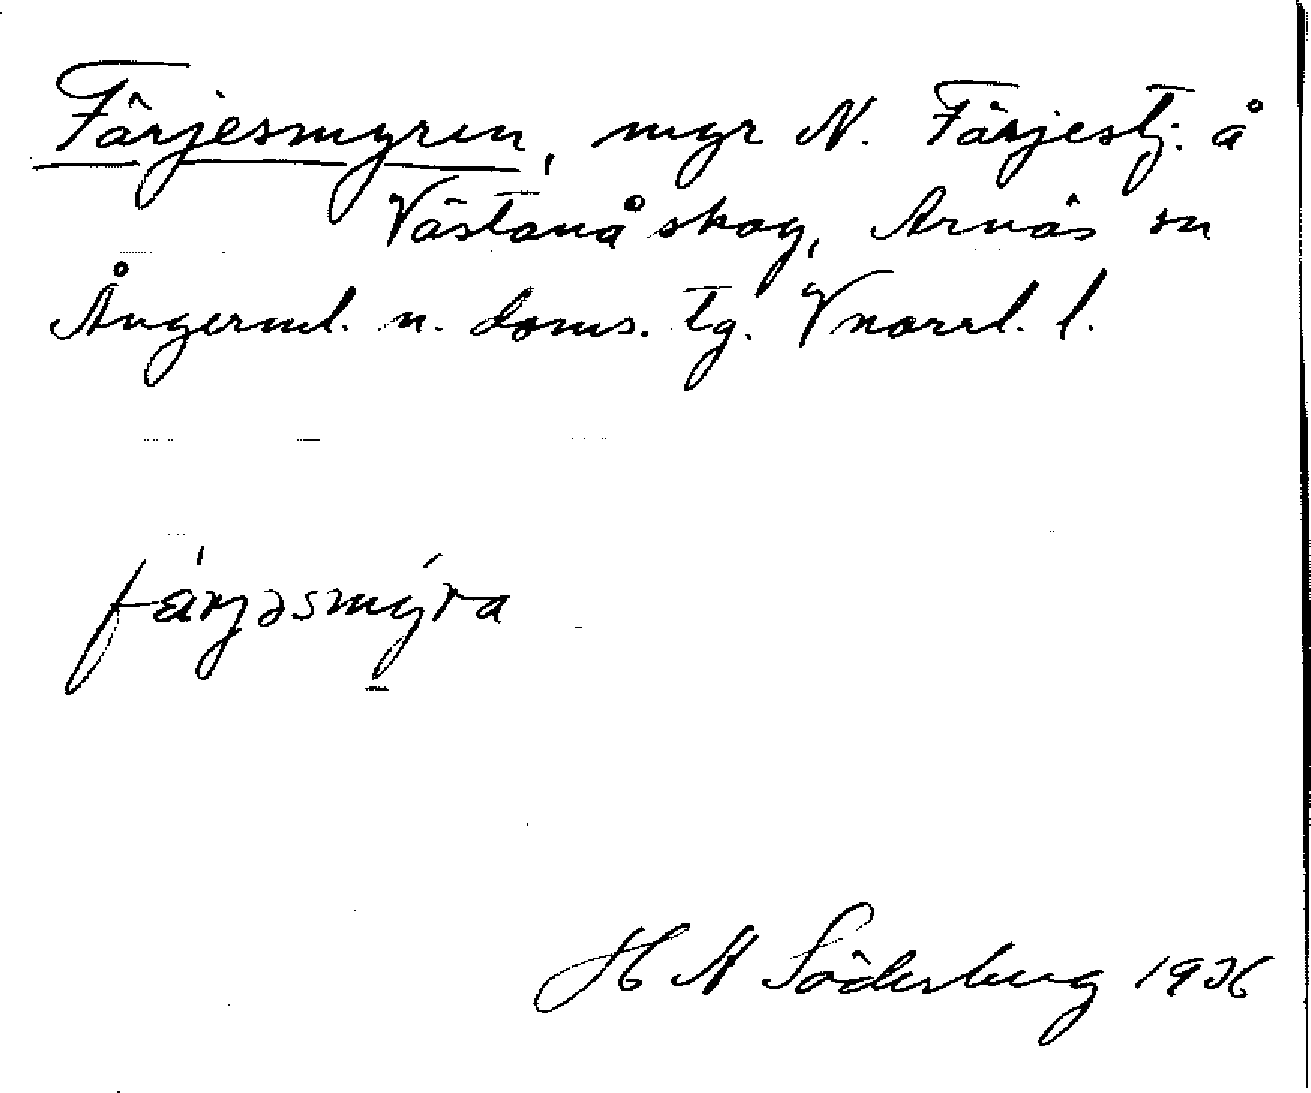 Färjesmyren, myr N. Färjestj. å
Västanåskog, Arnäs sn
Ångerml. n. doms. tg. Vnorrl. l.
fä́rjəsmýra
H N Söderberg 1936